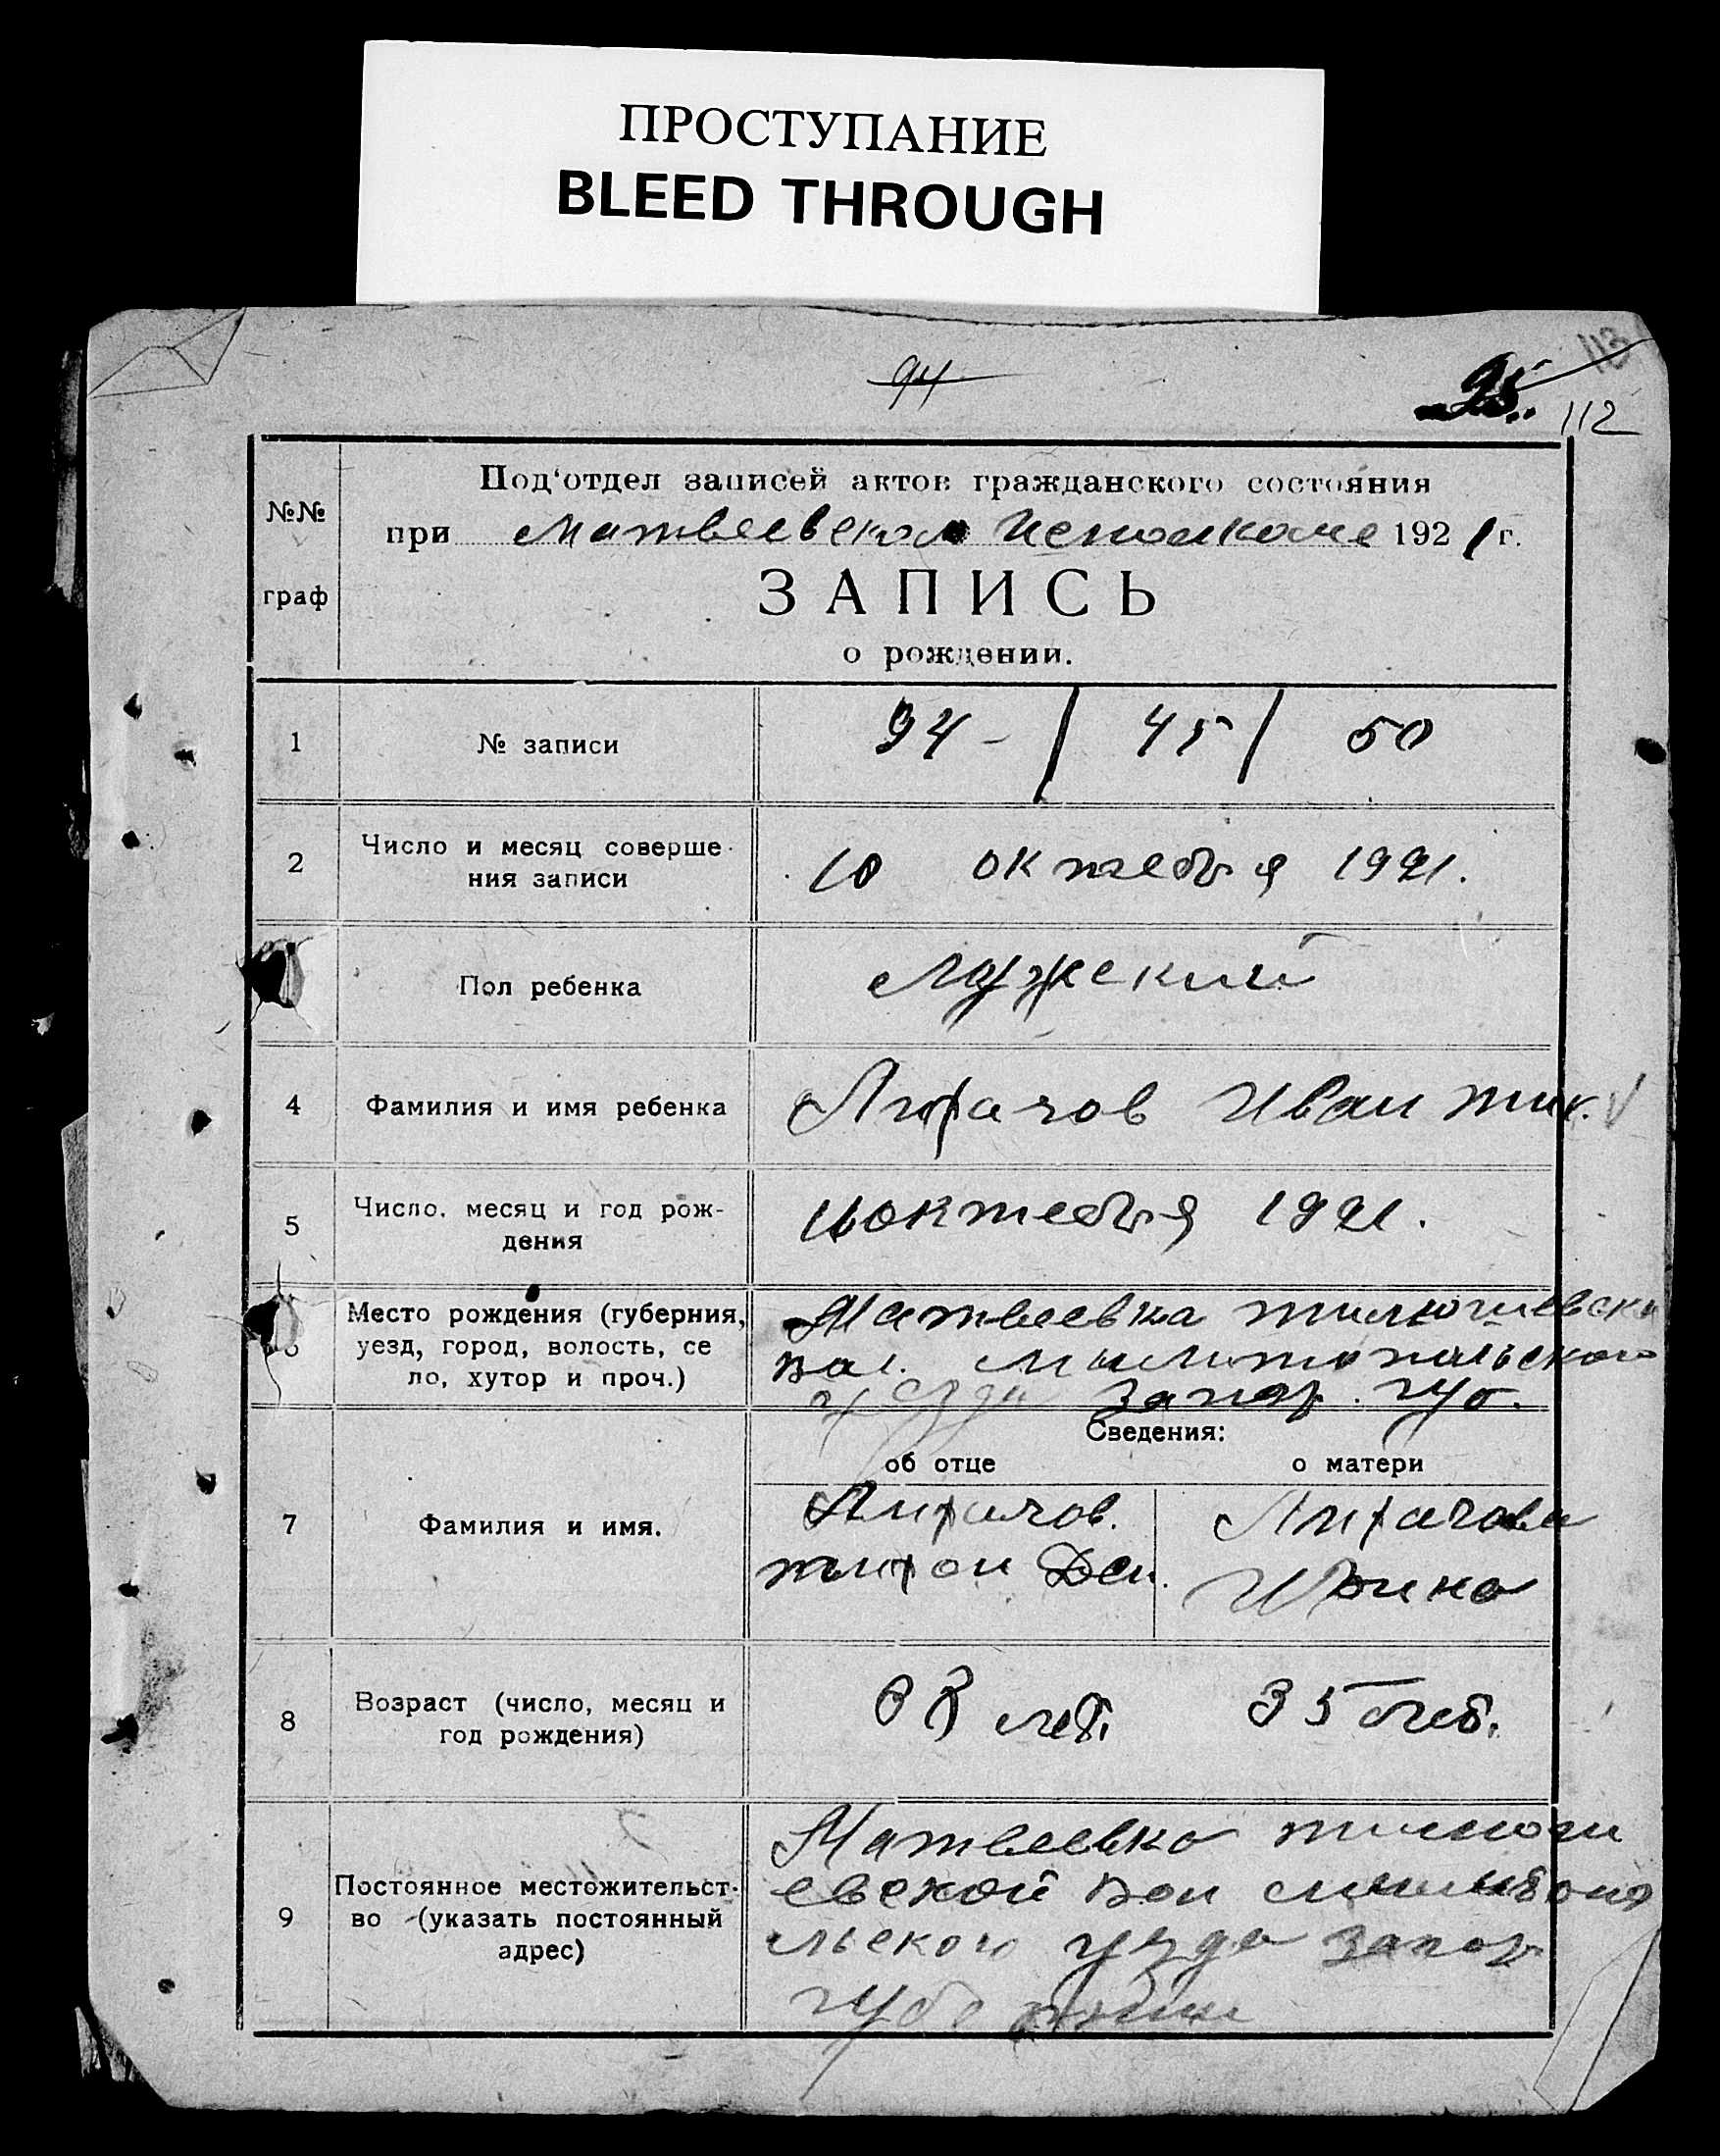 ПРОСТУПАНИЕ
BLEED THROUGH
94
95.
113
112
№№
граф
Под‘отдел записей актов гражданского состояния
при Матвеевском Исполкоме 1921 г.
ЗАПИСЬ
о рождении.
1
№ записи
94 - / 45 / 50
2
Число и месяц соверше-
ния записи
10 октебря 1921.
Пол ребенка
Мужский
4
Фамилия и имя ребенка
Лихачов Иван тих. V
5
Число, месяц и год рож-
дения
октебря 1921.
Место рождения (губерния,
уезд, город, волость, се
ло, хутор и проч.)
Матвеевка
вол.
уезда запор. губ.
Сведения:
об отце
о матери
7
Фамилия и имя.
Лихачов.
тихон Ден.
Лихачова
Ирина
8
Возраст (число, месяц и
год рождения)
лет.
35 лет.
9
Постоянное местожительст-
во (указать постоянный
адрес)
Матвеевка
евской вол
льского уезда запор